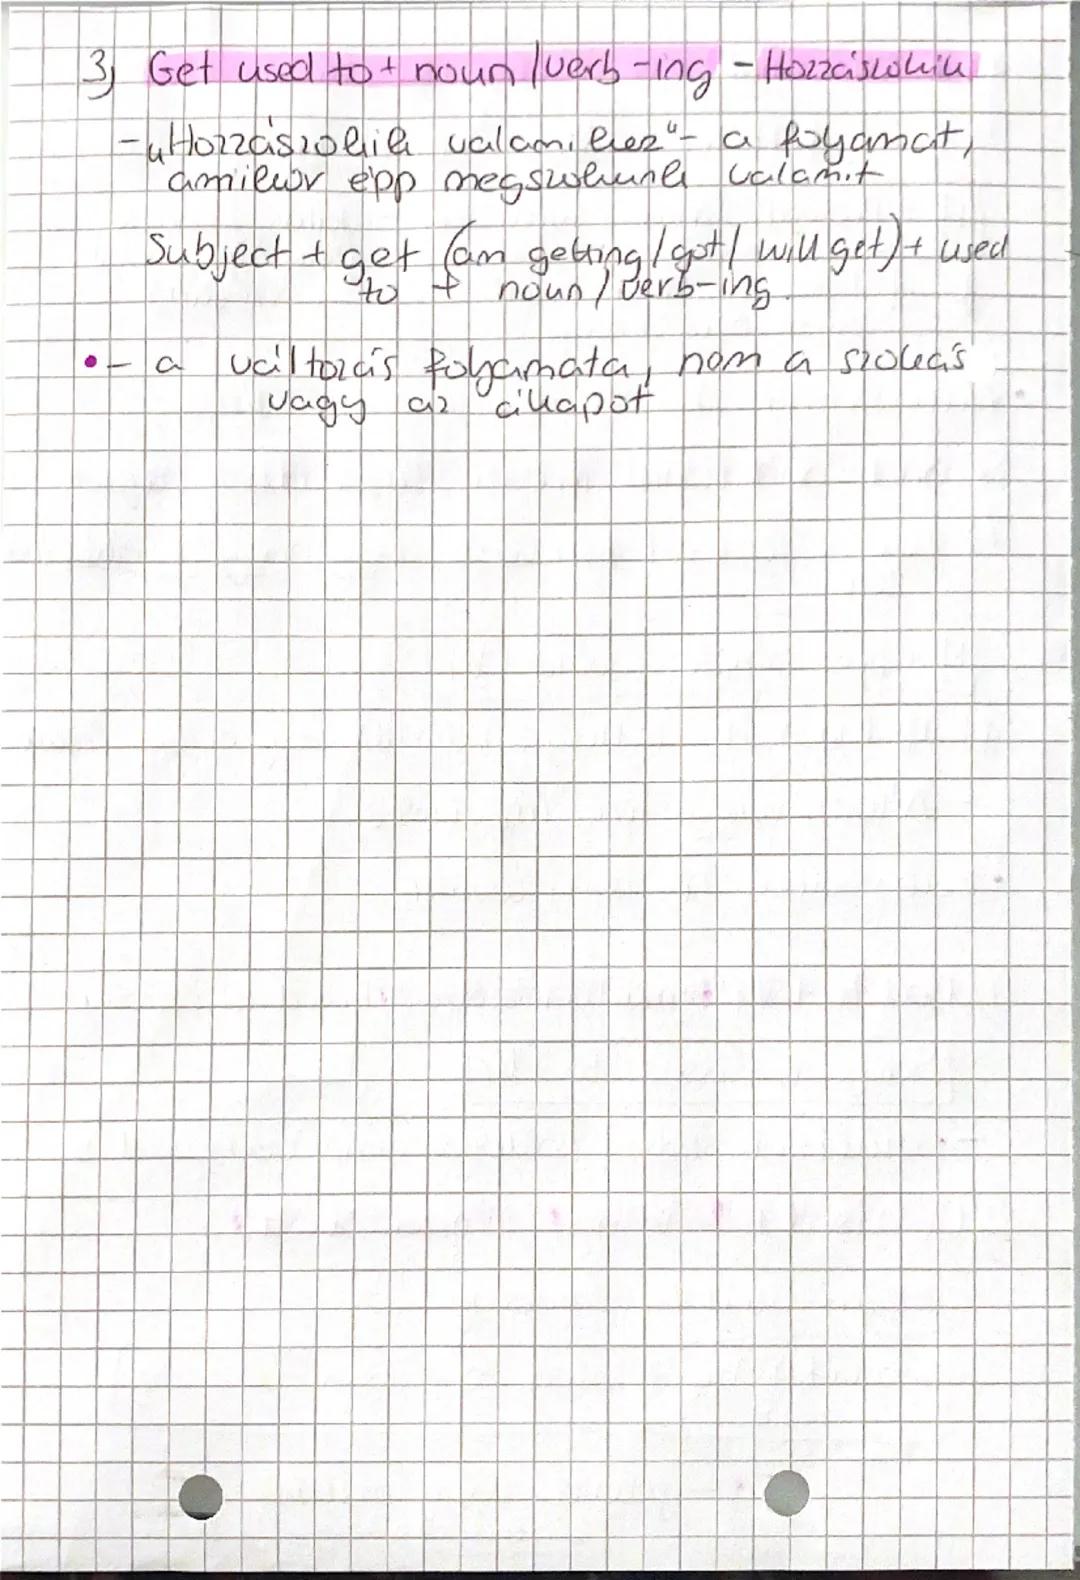 3, Get used to + noun / verb -ing - Hozzászokik
- „Hozzászokik valamihez" - a folyamat,
amikor épp megszokunk valamit
Subject + get (am getting / got / will get) + used
to + noun / verb-ing
• - a változás folyamata, nem a szokás
vagy az állapot